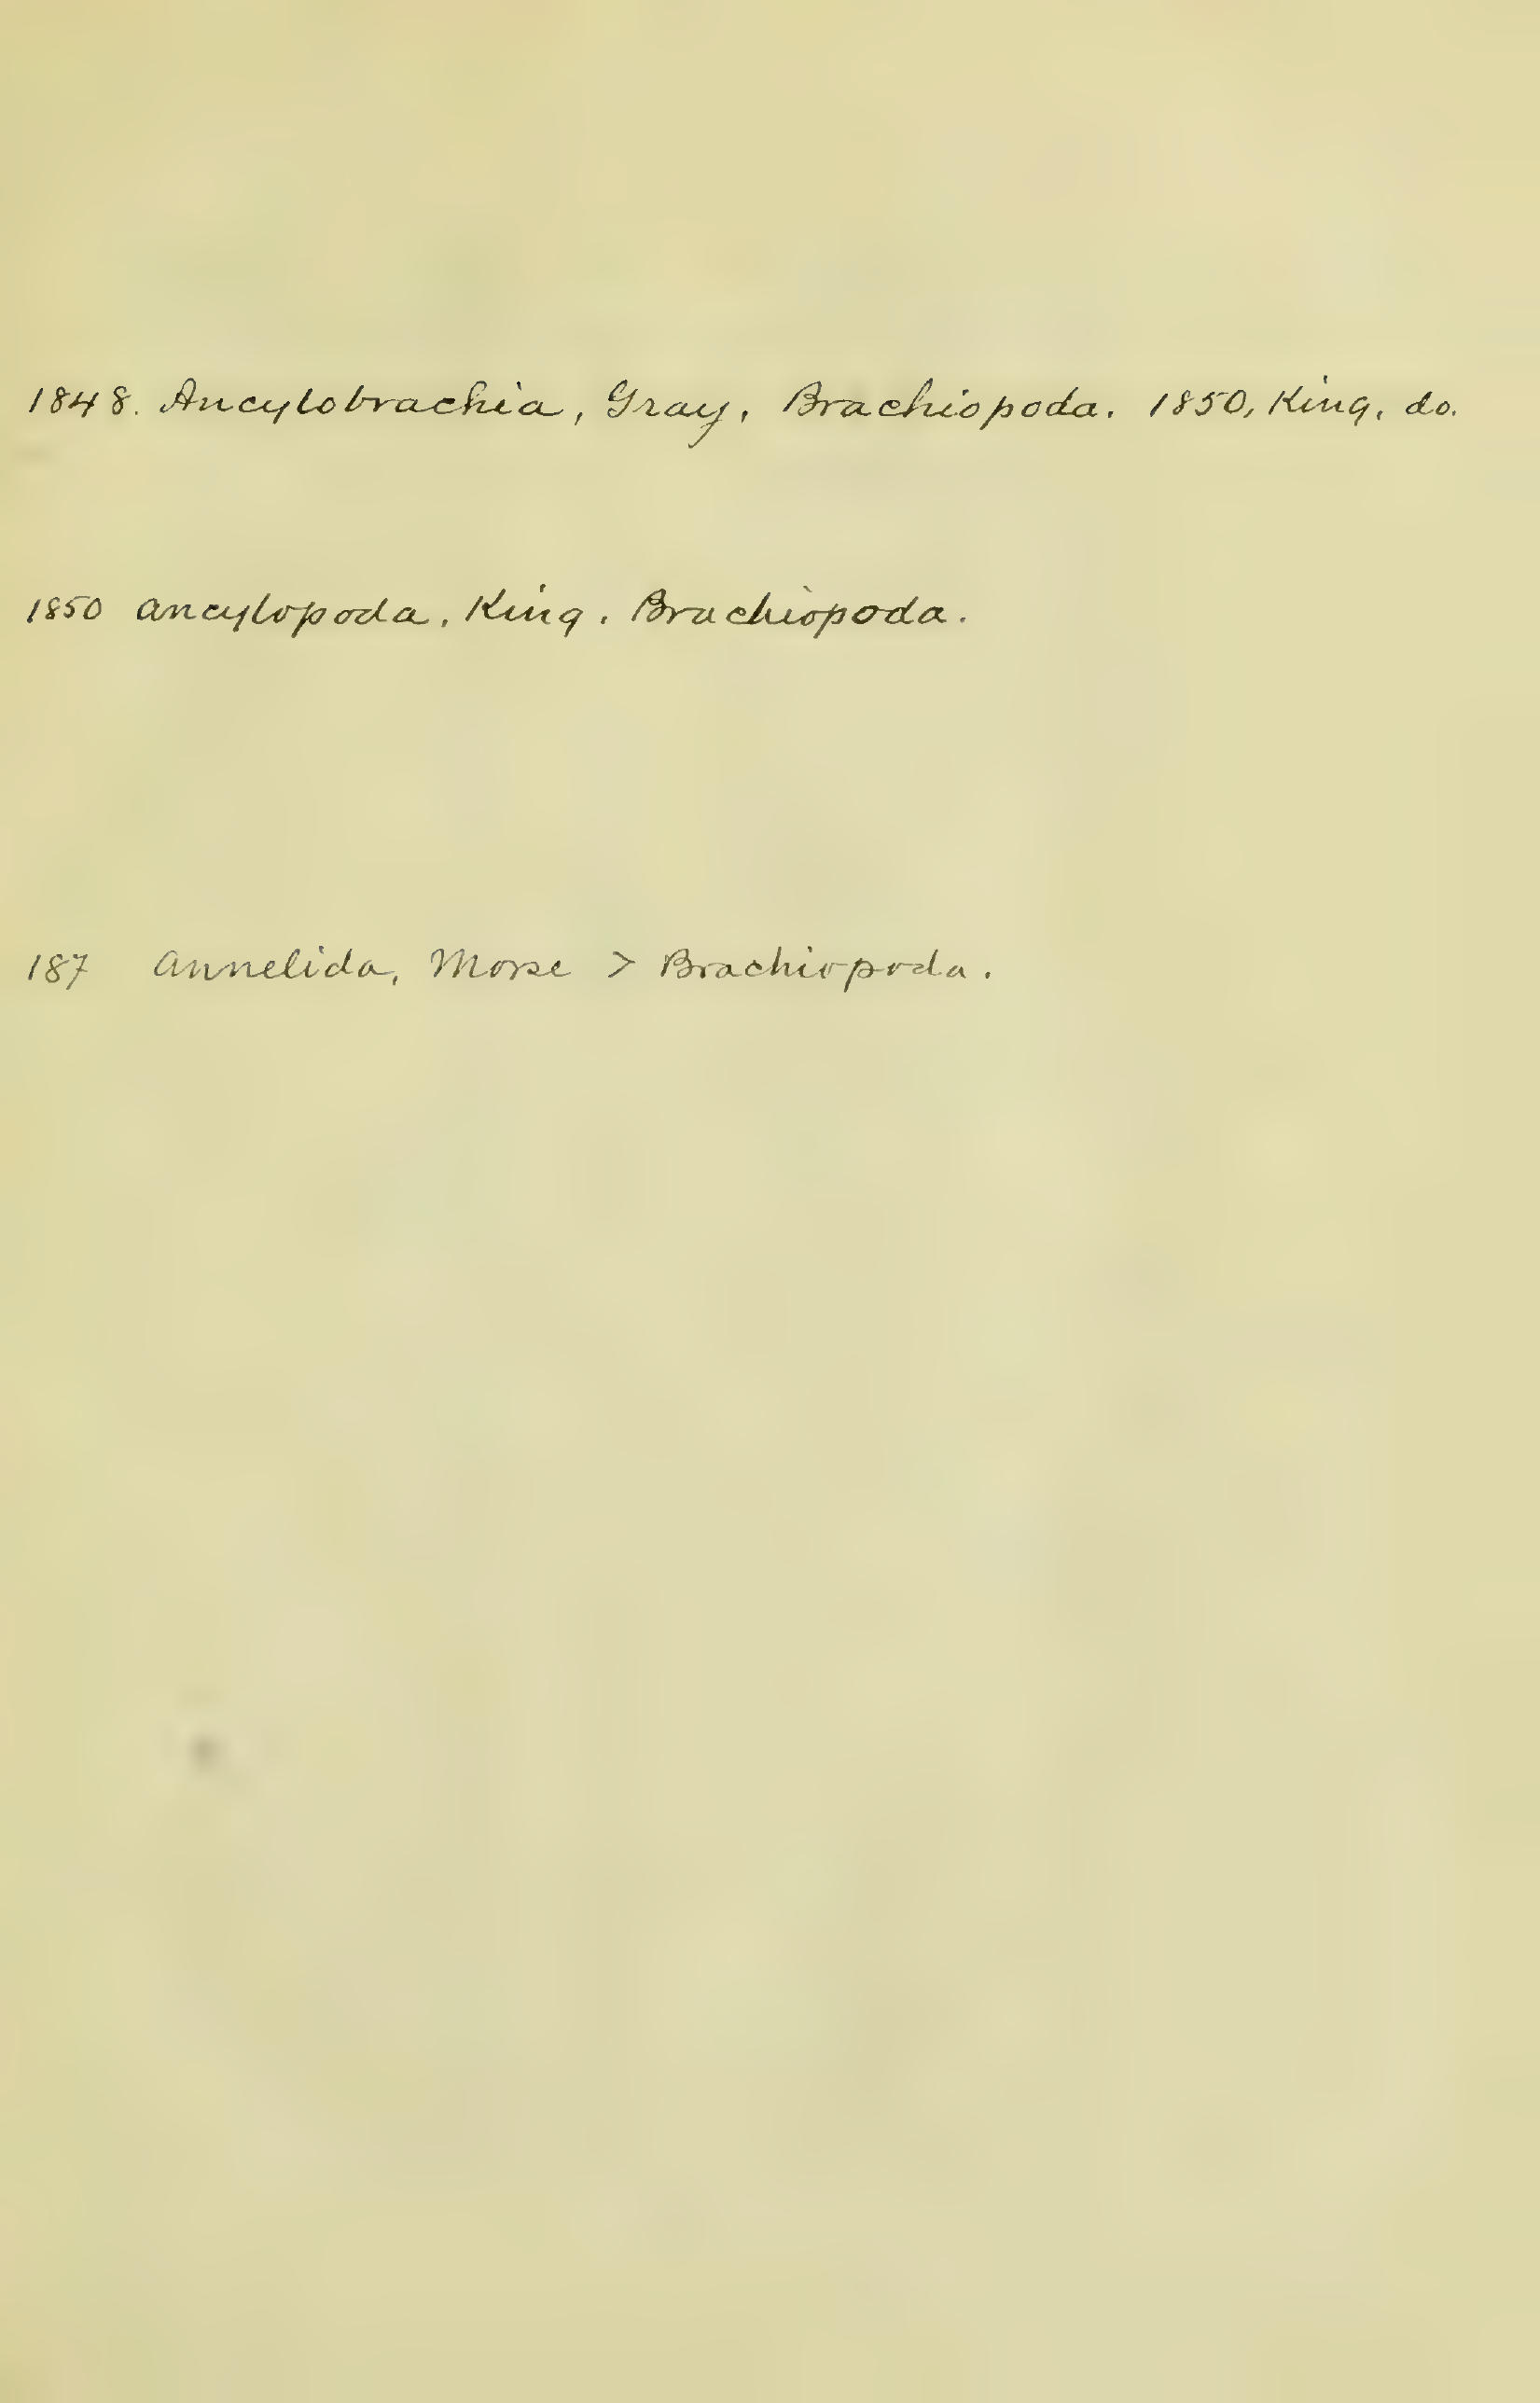 1848. Ancylobrachia, Gray, Brachiopoda. 1850, King, do.
1850 Ancylopoda, King. Brachiopoda.
187 Annelida, Morse > Brachiopoda.